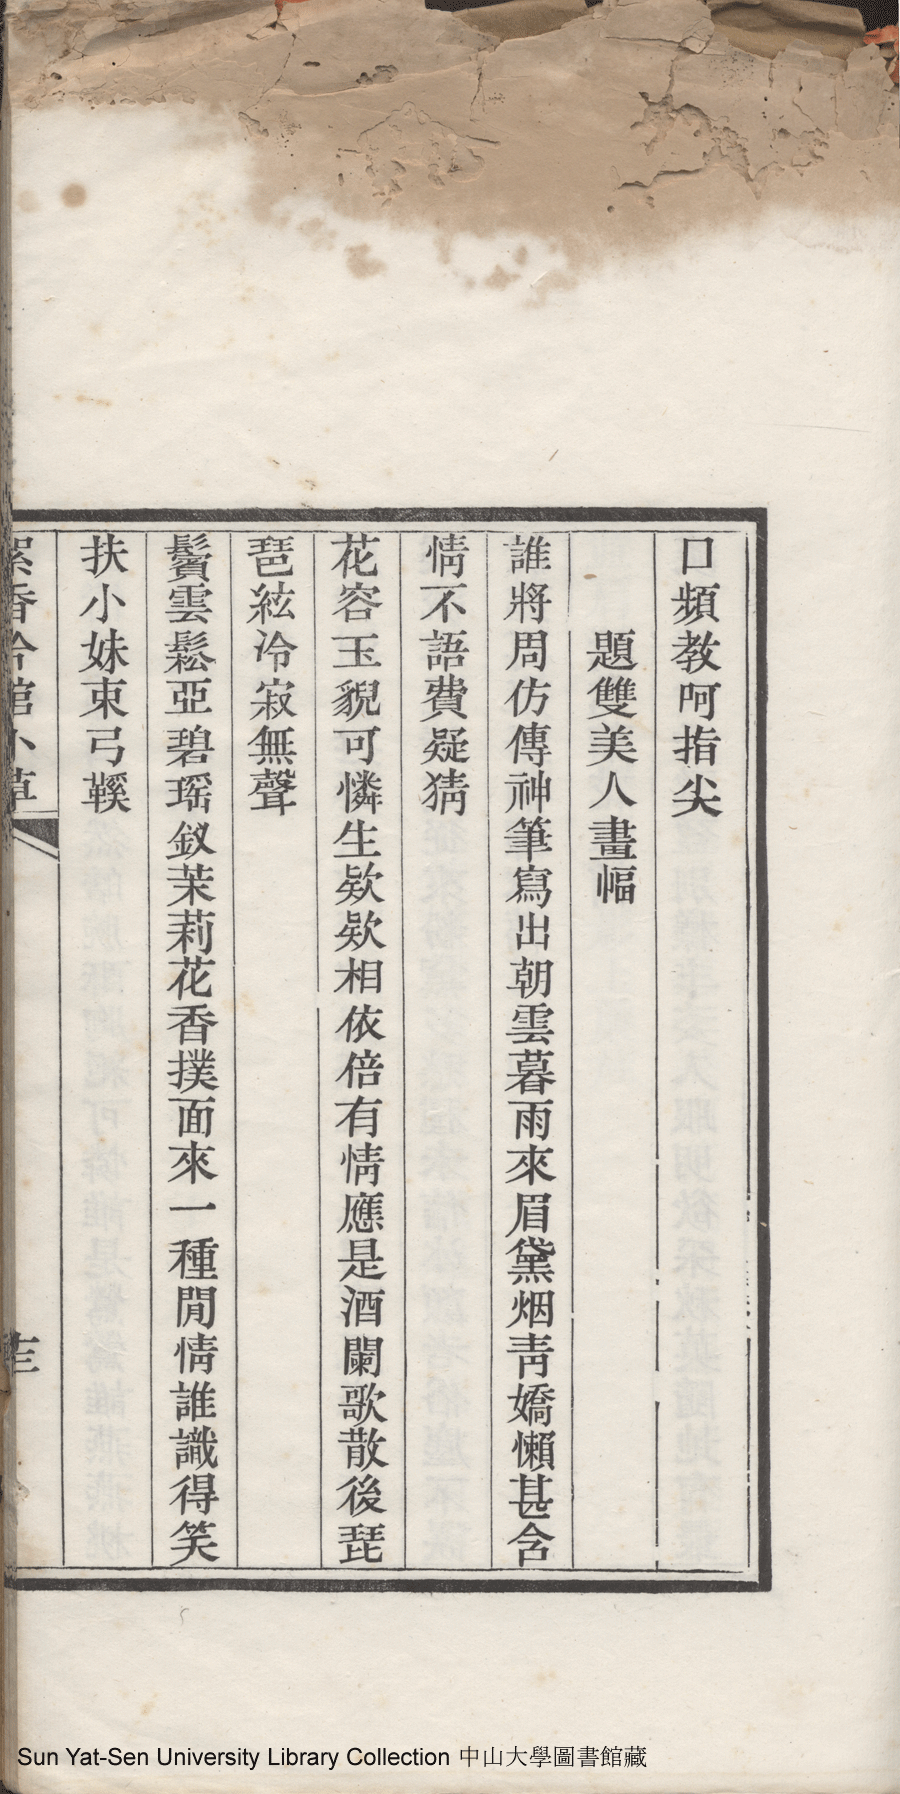 口頻教呵指尖
題雙美人畫幅
誰將周仿傳神筆寫出朝雲暮雨來眉黛烟靑嬌懶甚含
情不語費疑猜
花容玉貌可憐生欵欵相依倍有情應是酒闌歌散後琵
琶絃冷寂無聲
鬢雲鬆亞碧瑶釵茉莉花香撲面來一種閒情誰識得笑
扶小妹束弓鞵
絮香吟館小草
Sun Yat-Sen University Library Collection 中山大學圖書館藏